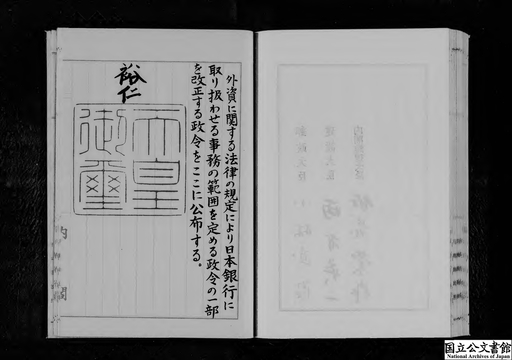 外資に関する法律の規定により日本銀行に
取り扱わせる事務の範囲を定める政令の一部
を改正する政令をここに公布する。
裕仁
天皇
御璽
内閣
国立公文書館
National Archives of Japan